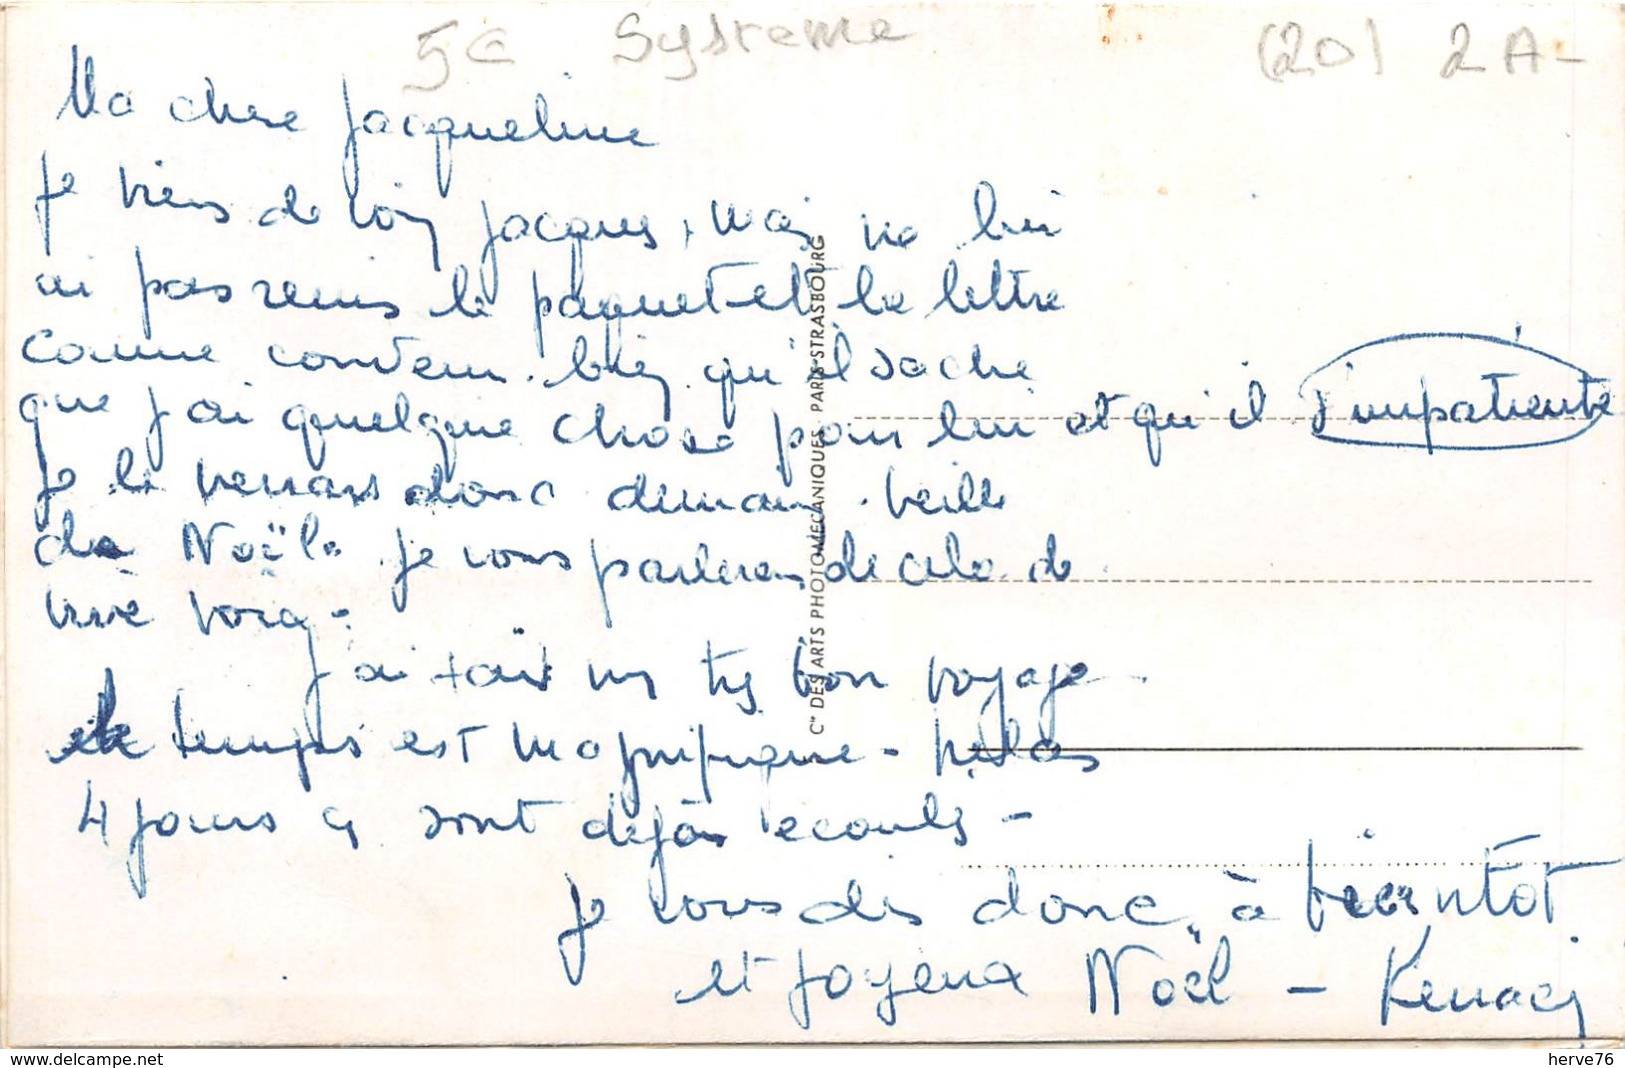 5€ Systeme (20) 2A-
Ma chere Jacqueline
Je viens de voir Jacques, mais ne lui
ai pas remis le paquet et la lettre
comme convenu. bien qu'il sache
que j'ai quelque chose pour lui et qu'il s'impatiente
je le verrais donc demain. veille
de Noël. je vous parlerai de cela de
vive voix.
J'ai fait un très bon voyage.
le temps est magnifique - helas
4 jours se sont déjà écoulés -
Je vous dis donc, à bientot
et Joyeux Noël -
Cie DES ARTS PHOTOMECANIQUES PARIS-STRASBOURG
www.delcampe.net
herve76